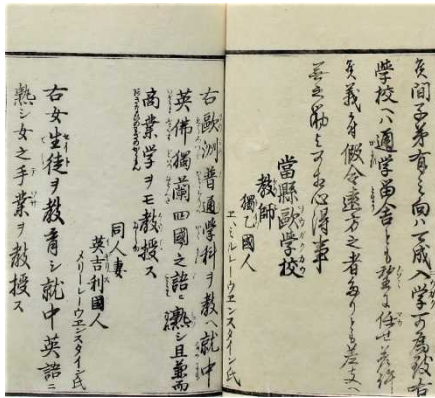 候間子弟有之向ハ成入学可為致右
学校ハ通学留舎とも望に任せ差許
候義ニ付假令遠方之者たりとも差支
無之勘之可心得事
當縣歐学校
教師
獨乙國人
エミルレーウエンスタイン氏
右歐洲普通學科ヲ教ヘ就中
英佛獨蘭四國之語ニ熟シ且兼而
商業学ヲモ教授ス
同人妻
英吉利國人
メリーレーウエンスタイン氏
右女生徒ヲ教育シ就中英語ニ
熟シ女之手業ヲ教授ス